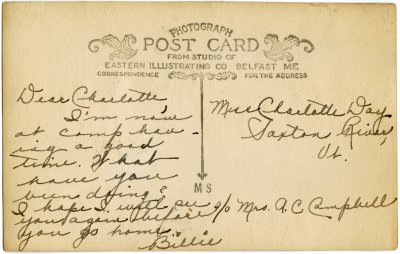 PHOTOGRAPH
POST CARD
FROM STUDIO OF
EASTERN ILLUSTRATING CO BELFAST ME
CORRESPONDENCE
FOR THE ADDRESS
Dear Charlotte,
I'm now
at camp hav-
ing a good
time. What
have you
been doing?
I hope I will see
you again before
you go home.
Billie
MS
Miss Charlotte Day
Saxton River,
Vt.
c/o Mrs. A.C. Campbell